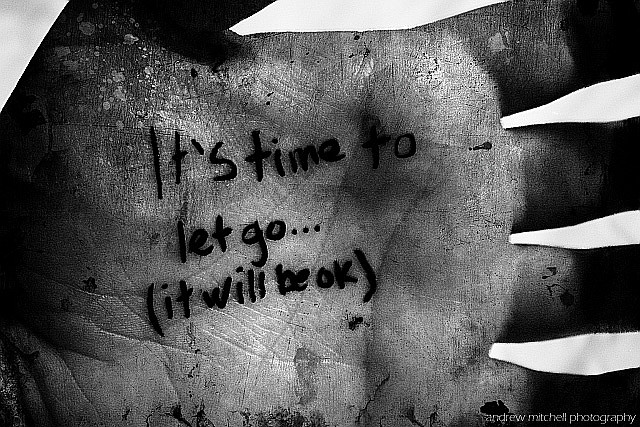 It's time to
let go...
(it will be ok)
andrew mitchell photography